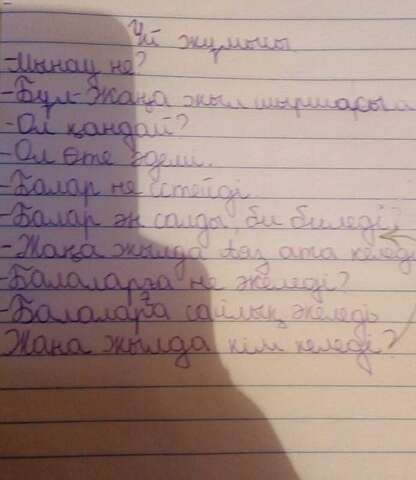 Үй жұмысы.
-Мынау не?
-Бұл-Жаңа жыл шыршасы
-Ол қандай?
-Ол өте әдемі.
-Балар не істейді
-Балар ән салды, би биледі,
-Жаңа жылда Аяз ата келеді
-Балаларға не әкеледі?
-Балаларға сайлық әкеледі
Жаңа жылда кім келеді?